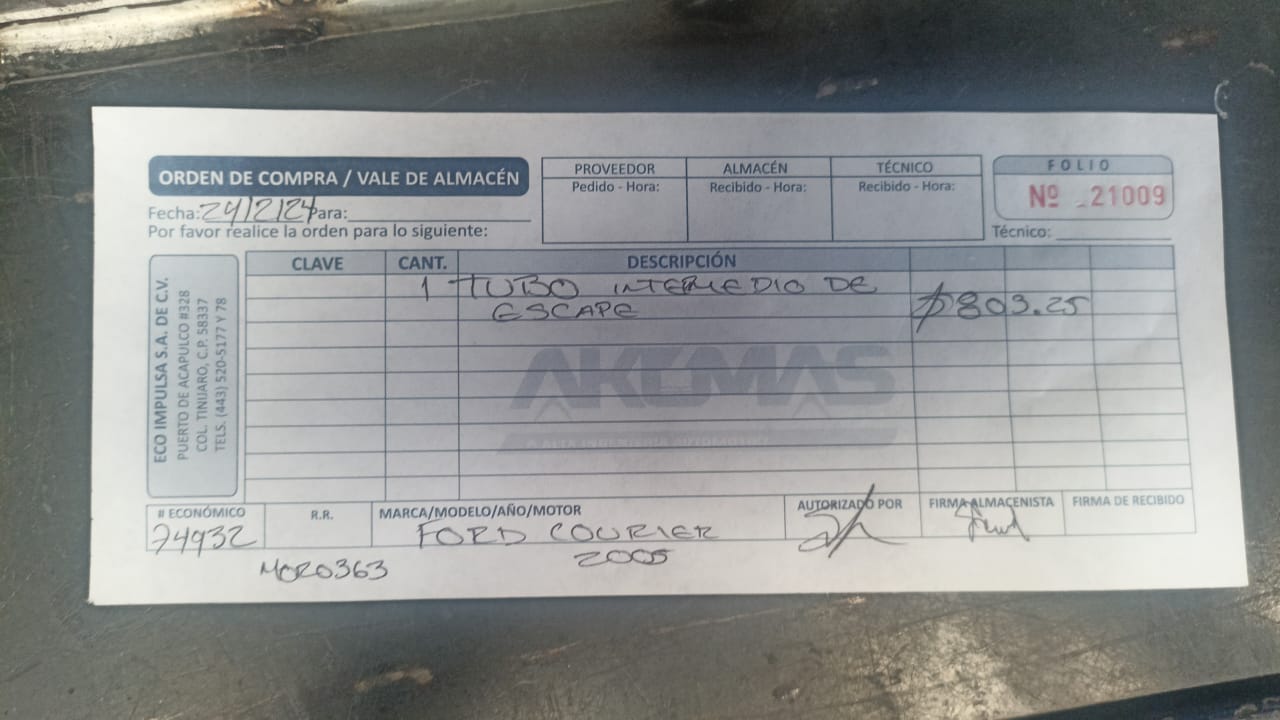 ORDEN DE COMPRA / VALE DE ALMACÉN
Fecha: 24/2/24 Para:
Por favor realice la orden para lo siguiente:
PROVEEDOR ALMACÉN TÉCNICO
Pedido - Hora: Recibido - Hora: Recibido - Hora:
FOLIO
Nº 21009
Técnico:
ECO IMPULSA S.A. DE C.V.
PUERTO DE ACAPULCO #328
COL. TINIJARO, C.P. 58337
TELS. (443) 520-5177 Y 78
CLAVE CANT. DESCRIPCIÓN
1 TUBO INTERMEDIO DE
ESCAPE $803.25
# ECONÓMICO R.R. MARCA/MODELO/AÑO/MOTOR AUTORIZADO POR FIRMA ALMACENISTA FIRMA DE RECIBIDO
74932 FORD COURIER
2005
MOR0363